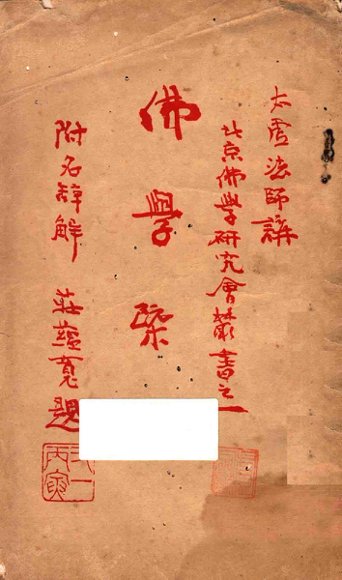 太虛法師講
北京佛學研究會叢書之一
佛學槩
附名辭解 莊蘊寬題